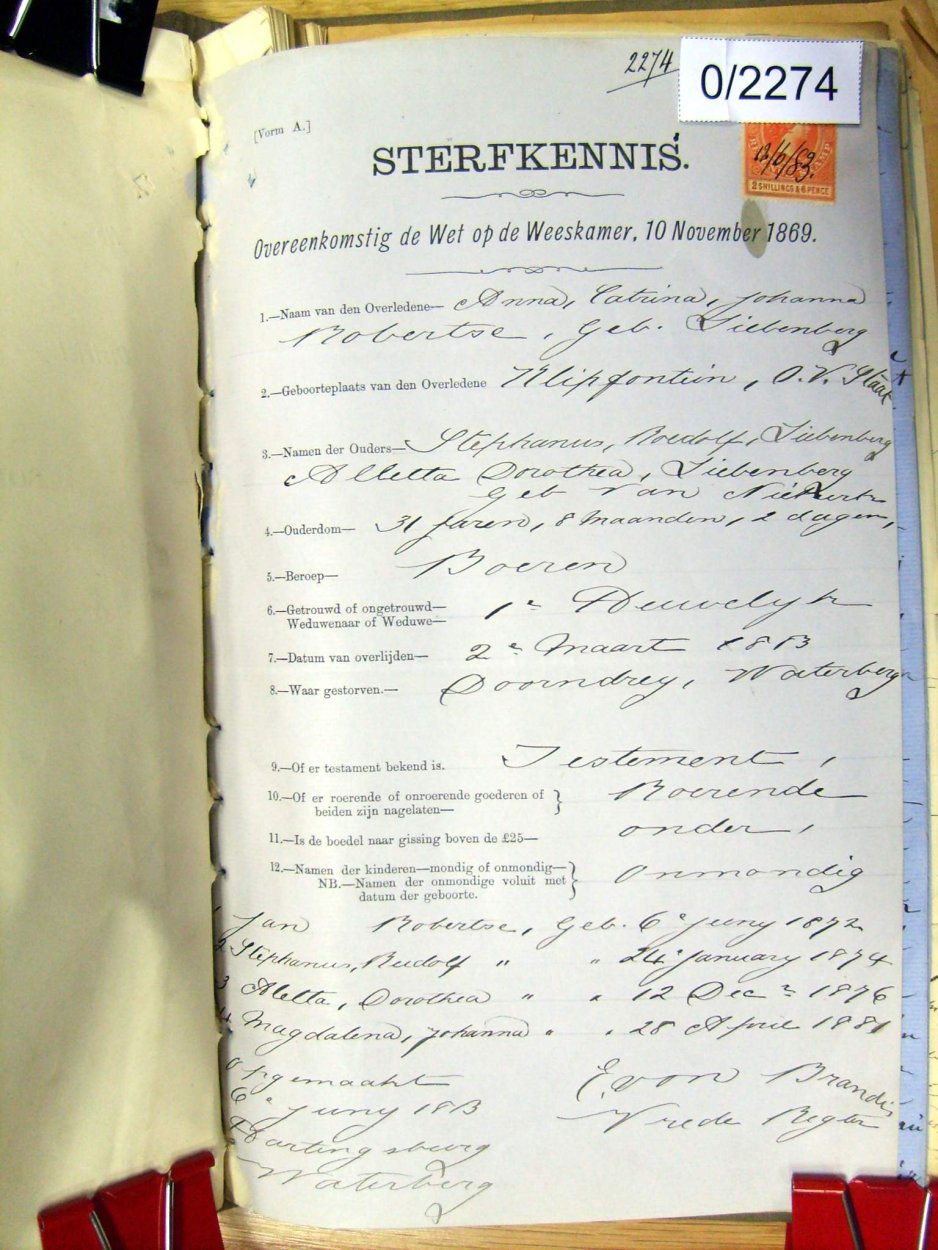 2274
0/2274
[Vorm A.]
STERFKENNIS.
12/6/83.
2 SHILLINGS & 6 PENCE
Overeenkomstig de Wet op de Weeskamer, 10 November 1869.
1.—Naam van den Overledene— Anna, Catrina, Johanna
Robertse, Geb. Liebenberg
2.—Geboorteplaats van den Overledene Klipfontein, O.V. Staat
3.—Namen der Ouders— Stephanus, Roedolf, Liebenberg
Alletta Dorothea, Liebenberg
Geb van Niekerk
4.—Ouderdom— 31 Jaren, 8 Maanden, 2 dagen,
5.—Beroep— Boeren
6.—Getrouwd of ongetrouwd—
Weduwenaar of Weduwe— 1e Huwelyk
7.—Datum van overlijden— 2e Maart 1883
8.—Waar gestorven.— Doorndrey, Waterberg
9.—Of er testament bekend is. Testement,
10.—Of er roerende of onroerende goederen of
beiden zijn nagelaten— Roerende
11.—Is de boedel naar gissing boven de £25— onder,
12.—Namen der kinderen—mondig of onmondig—
NB.—Namen der onmondige voluit met
datum der geboorte. Onmondig
1 Jan Robertse, Geb. 6e Juny 1872
2 Stephanus, Rudolf " " 24e January 1874
3 Aletta, Dorothea " " 12 Dec r 1876
4 Magdalena, Johanna " " 28 April 1881
Opgemaakt
6e Juny 1883
Hartingsburg
Waterberg
E. von Brandis
Vrede Regter